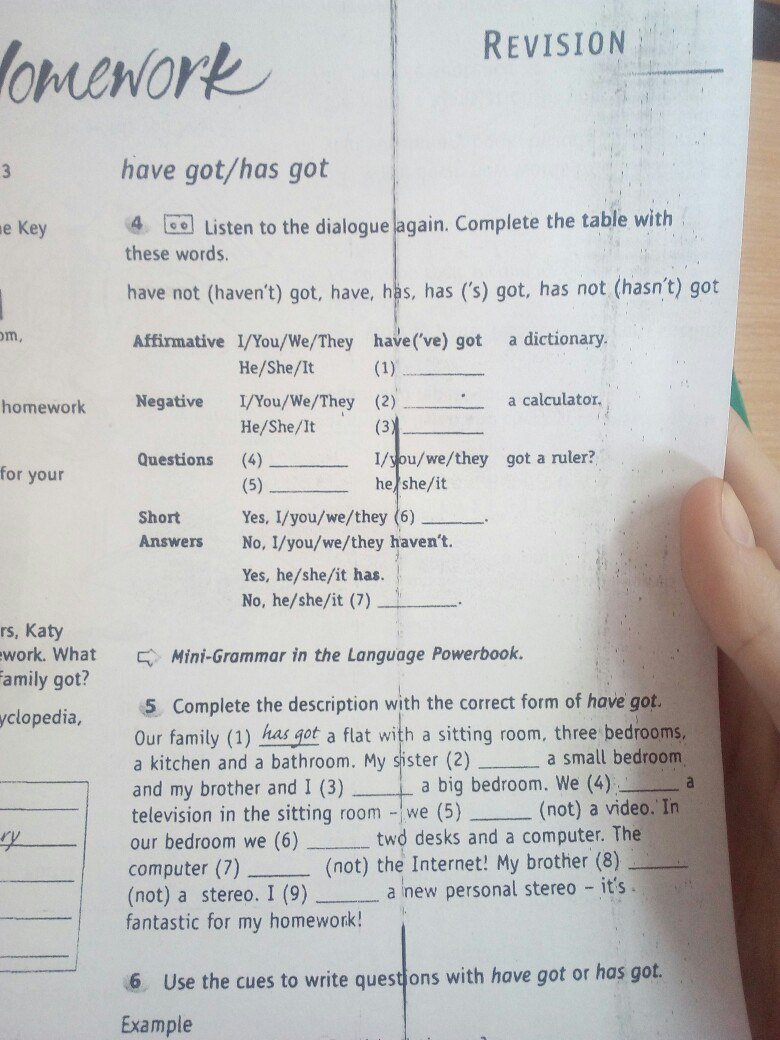 Homework
REVISION
3
have got/has got
e Key
4 Listen to the dialogue again. Complete the table with
these words.
have not (haven't) got, have, has, has ('s) got, has not (hasn't) got
om,
Affirmative I/You/We/They have('ve) got a dictionary.
He/She/It (1) ________
homework
Negative I/You/We/They (2) ________ a calculator.
He/She/It (3) ________
for your
Questions (4) ________ I/you/we/they got a ruler?
(5) ________ he/she/it
Short Yes, I/you/we/they (6) ________.
Answers No, I/you/we/they haven't.
Yes, he/she/it has.
No, he/she/it (7) ________.
rs, Katy
ework. What
family got?
yclopedia,
ry
Mini-Grammar in the Language Powerbook.
5 Complete the description with the correct form of have got.
Our family (1) has got a flat with a sitting room, three bedrooms,
a kitchen and a bathroom. My sister (2) ______ a small bedroom
and my brother and I (3) ______ a big bedroom. We (4) ______ a
television in the sitting room – we (5) ______ (not) a video. In
our bedroom we (6) ______ two desks and a computer. The
computer (7) ______ (not) the Internet! My brother (8) ______
(not) a stereo. I (9) ______ a new personal stereo – it's
fantastic for my homework!
6 Use the cues to write questions with have got or has got.
Example